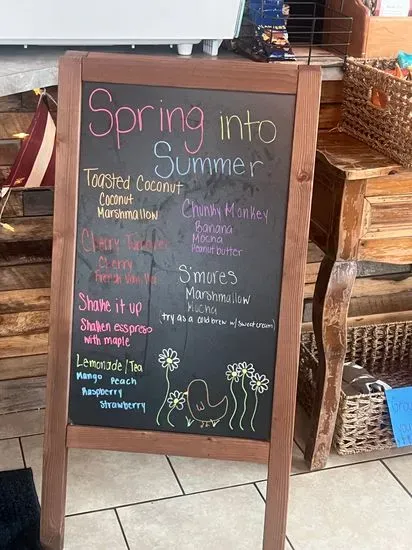 Spring into
Summer
Toasted Coconut
Coconut
Marshmallow
Cherry
Cherry
French
Shake it up
Shaken esspreso
with maple
Lemonade/Tea
Mango Peach
Raspberry
Strawberry
Chunky Monkey
Banana
Mocha
Peanut butter
S'mores
Marshmallow
Mocha
try as a cold brew w/ sweet cream